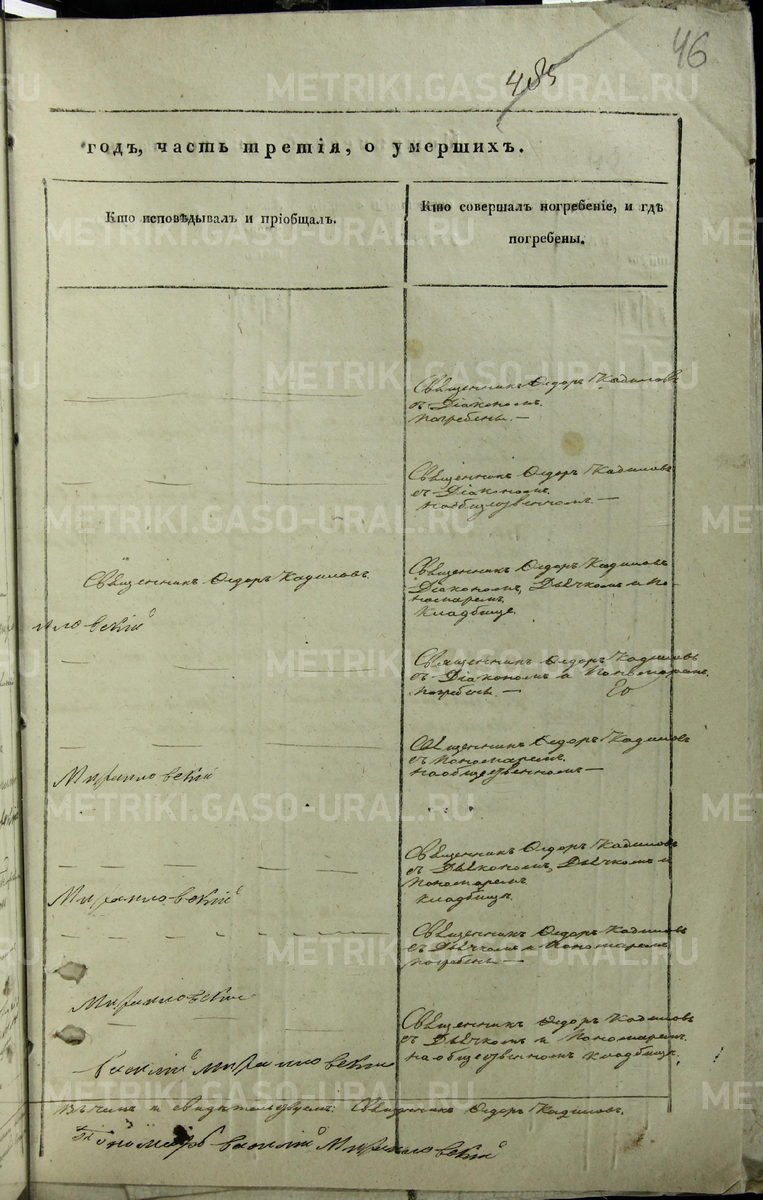 46
485
годъ, часть третія, о умершихъ.
Кто исповѣдывалъ и пріобщалъ.
Кто совершалъ погребеніе, и гдѣ
погребены.
Священникъ Ѳедоръ Кадиловъ
съ Діакономъ.
погребены. —
Священникъ Ѳедоръ Кадиловъ
съ Діакономъ
на общественномъ —
Священникъ Ѳедоръ Кадиловъ.
Священникъ Ѳедоръ Кадиловъ
Діакономъ, Дьячкомъ и По-
номаремъ
кладбище.
Священникъ Ѳедоръ Кадиловъ
съ Діакономъ и Пономаремъ.
погребены. —
Священникъ Ѳедоръ Кадиловъ
съ Пономаремъ.
на общественномъ —
Священникъ Ѳедоръ Кадиловъ
съ Дьякономъ, Дьячкомъ и
Пономаремъ
кладбищѣ.
Священникъ Ѳедоръ Кадиловъ
съ Дьячкомъ и Пономаремъ
погребены —
Священникъ Ѳедоръ Кадиловъ
съ Дьячкомъ и Пономаремъ.
на общественномъ кладбищѣ.
и свидѣтельствуемъ: Священникъ Ѳедоръ Кадиловъ.
Пономарь Василій
METRIKI.GASO-URAL.RU